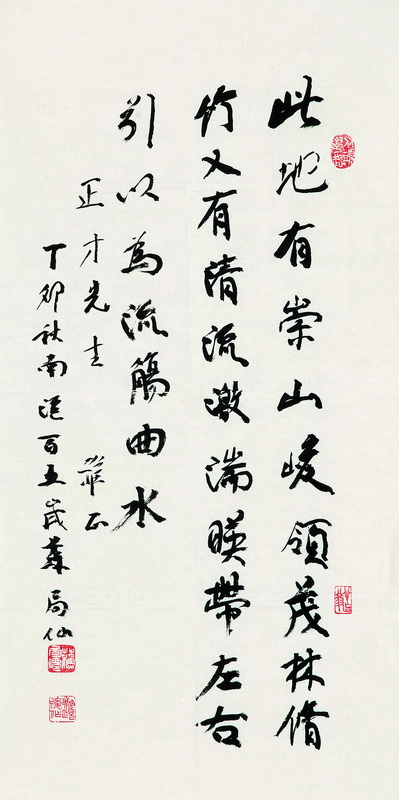 此地有崇山峻領茂林脩
竹又有清流激湍暎帶左右
引以為流觴曲水
正才先生 正
丁卯秋南滙百五歲蘇局仙